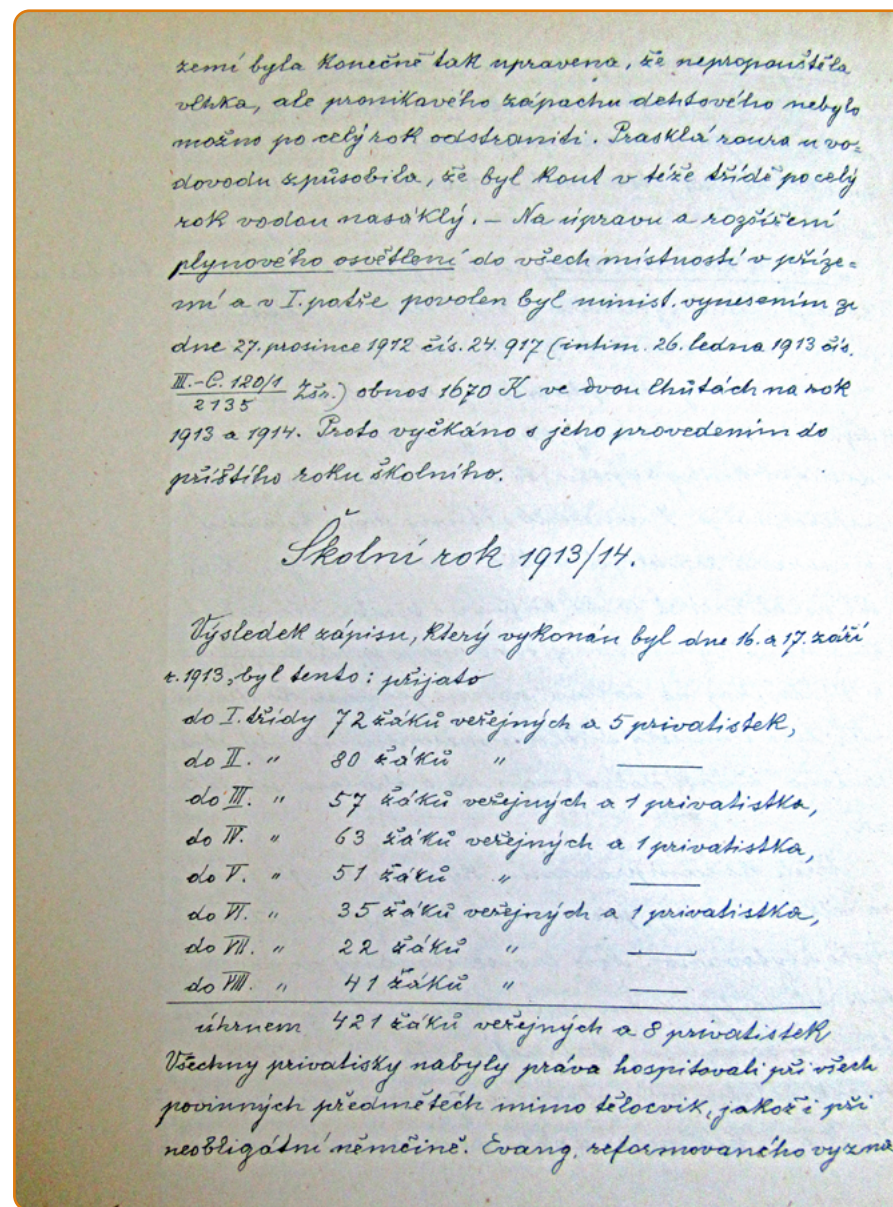 zemí byla konečně tak upravena, že nepropouštěla
vlhka, ale pronikavého zápachu dehtového nebylo
možno po celý rok odstraniti. Prasklá roura u vo-
dovodu způsobila, že byl kout v téže třídě po celý
rok vodou nasáklý. – Na úpravu a rozšíření
plynového osvětlení do všech místností v příze-
mí a v I. patře povolen byl minist. vynesením ze
dne 27. prosince 1912 čís. 24.917 (intim. 26. ledna 1913 čís.
III.-C. 120/1
2135 Zšr.) obnos 1670 K ve dvou lhůtách na rok
1913 a 1914. Proto vyčkáno s jeho provedením do
příštího roku školního.
Školní rok 1913/14.
Výsledek zápisu, který vykonán byl dne 16. a 17. září
r. 1913, byl tento: přijato
do I. třídy 72 žáků veřejných a 5 privatistek,
do II. " 80 žáků " —
do III. " 57 žáků veřejných a 1 privatistka,
do IV. " 63 žáků veřejných a 1 privatistka,
do V. " 51 žáků " —
do VI. " 35 žáků veřejných a 1 privatistka,
do VII. " 22 žáků " —
do VIII. " 41 žáků " —
úhrnem 421 žáků veřejných a 8 privatistek
Všechny privatisky nabyly práva hospitovali při všech
povinných předmětech mimo tělocvik, jakož i při
neobligátní němčině. Evang. reformovaného vyzna